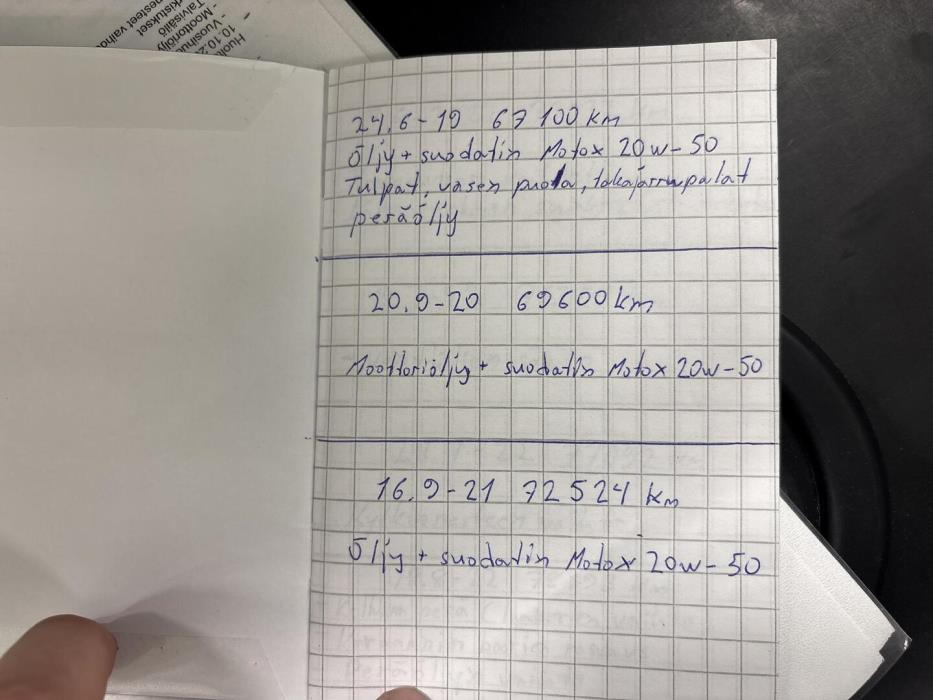 Huolt
10.10.2
- Vuosihuo
- Moottoriölj
- Talvisäilö
24.6-19 67100 km
Öljy + suodatin Motox 20w-50
Tulpat, vasen puola, takajarrupalat
peräöljy
20.9-20 69600 km
Moottoriöljy + suodatin Motox 20w-50
16.9-21 72524 km
Öljy + suodatin Motox 20w-50